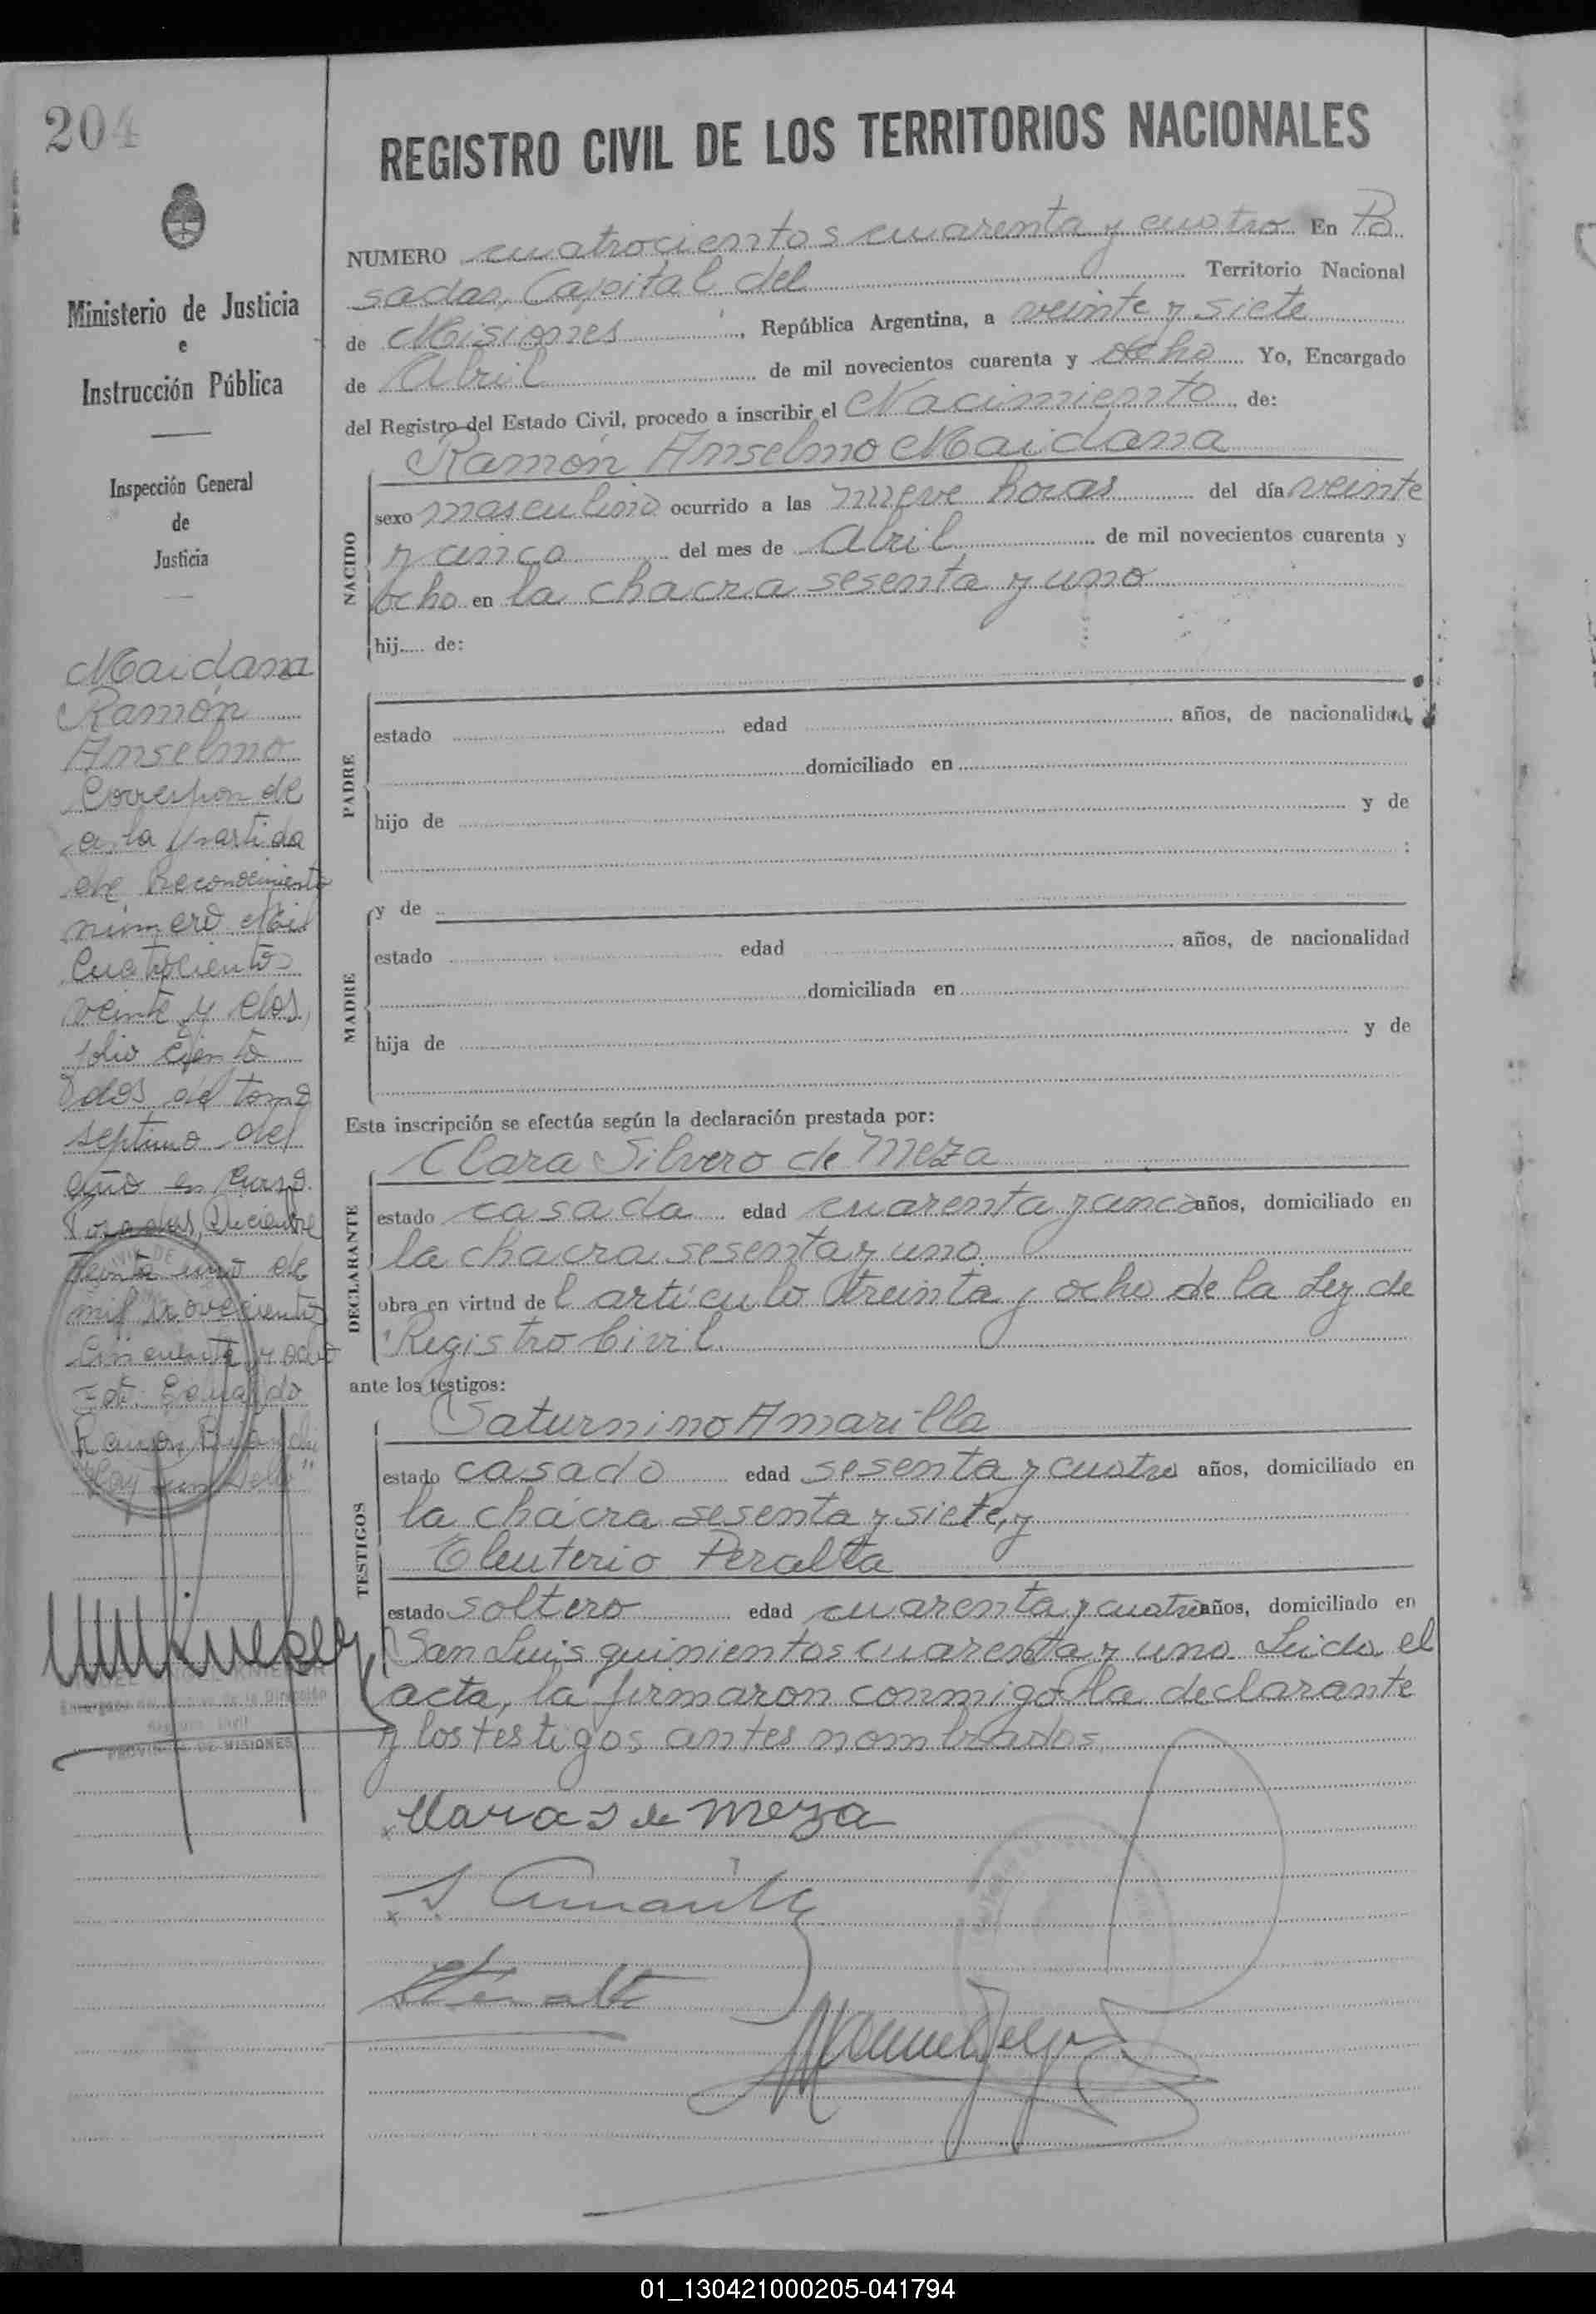 204
Ministerio de Justicia
e
Instrucción Pública
Inspección General
de
Justicia
Maidana
Ramón
Anselmo
Corresponde
a la partida
de Reconocimiento
número Mil
Cuatrocientos
veinte y dos,
folio ciento
dos del tomo
septimo del
año en curso.
Posadas, Diciembre
treinta uno de
mil novecientos
cincuenta y ocho
Ramón
PROVINCIA DE MISIONES
REGISTRO CIVIL DE LOS TERRITORIOS NACIONALES
NUMERO cuatrocientos cuarenta y cuatro En Po
sadas, Capital del Territorio Nacional
de Misiones, República Argentina, a veinte y siete
de Abril de mil novecientos cuarenta y ocho Yo, Encargado
del Registro del Estado Civil, procedo a inscribir el Nacimiento de:
Ramón Anselmo Maidana
NACIDO
sexo masculino ocurrido a las nueve horas del día veinte
y cinco del mes de Abril de mil novecientos cuarenta y
ocho en la chacra sesenta y uno
hij..... de:
PADRE
estado edad años, de nacionalidad
domiciliado en
hijo de y de
:
MADRE
y de
estado edad años, de nacionalidad
domiciliada en
hija de y de
Esta inscripción se efectúa según la declaración prestada por:
Clara Silvero de Meza
DECLARANTE
estado casada edad cuarenta y cinco años, domiciliado en
la chacra sesenta y uno
obra en virtud del artículo treinta y ocho de la Ley de
Registro Civil.
ante los testigos:
Saturnino Amarilla
TESTIGOS
estado casado edad sesenta y cuatro años, domiciliado en
la chacra sesenta y siete, y
Eleuterio Peralta
estado soltero edad cuarenta y cuatro años, domiciliado en
San Luis quinientos cuarenta y uno. Leida el
acta, la firmaron conmigo la declarante
y los testigos antes nombrados.
Clara S de Meza
S. Amarilla
Peralta
01_130421000205-041794